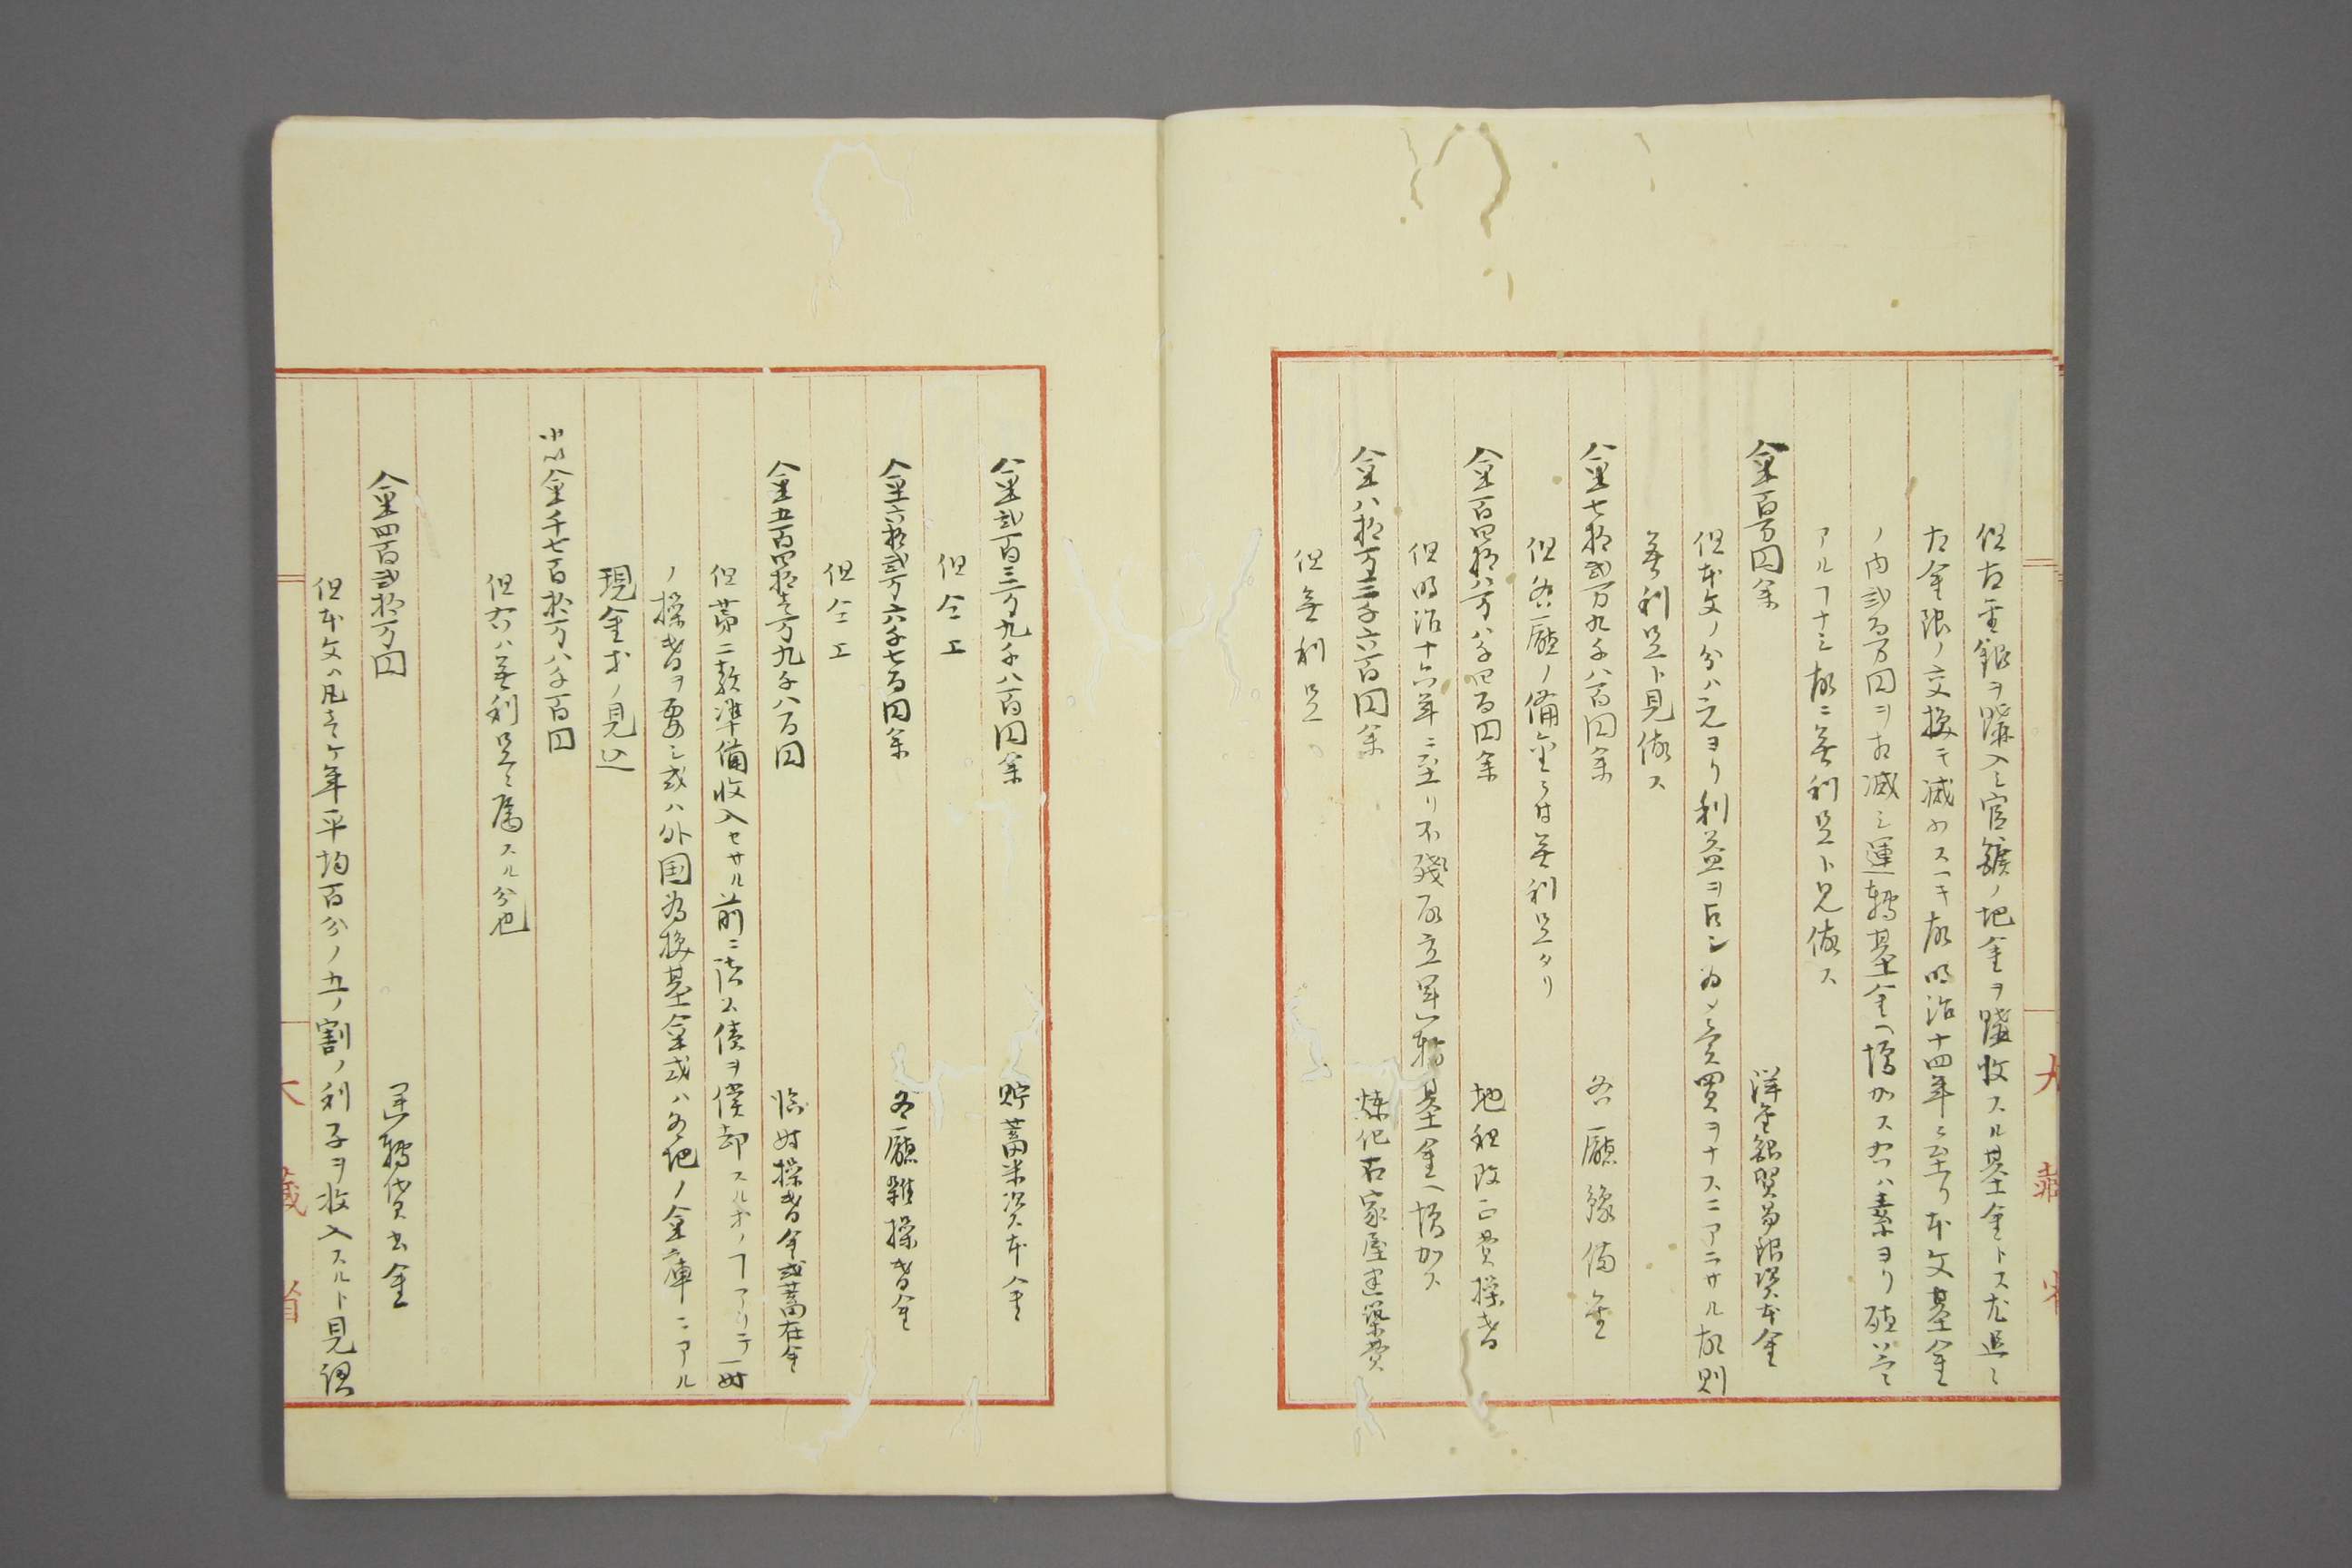 但古金銀ヲ購入シ官鑛ノ地金ヲ購收スル基金トス尤追々
古金銀ノ交換モ減少スヘキ故明治十四年ニ至リ本文基金
ノ内弐百万円ヲ相減シ運轉基金ヘ増加ス右ハ素ヨリ確益
アルヿナシ故ニ無利足ト見做ス
金百万円余 洋金銀貿易銀資本金
但本文ノ分ハ元ヨリ利益ヲ占ンカ為メ売買ヲナスニアラサル故則
無利足ト見做ス
金七拾弐万九千八百円余 各廳豫備金
但各廳ノ備金ニ付無利足タリ
金百四拾八万八千四百円余 地租改正費操替
但明治十六年ニ至リ不殘取立運轉基金ヘ増加ス
金八拾万三千六百円余 煉化石家屋建築費
但無利足
金弐百三万九千八百円余 貯蓄米資本金
但仝上
金六拾弐万六千七百円余 各廳雜操替金
但仝上
金五百四拾壱万九千八百円 臨時操替金或蓄在金
但第二款準備收入セサル前ニ諸公債ヲ償却スル等ノヿアリテ一時
ノ操替ヲ要シ或ハ外国為換基金或ハ各地ノ金庫ニアル
現金等ノ見込
小以金千七百拾万八千百円
但右ハ無利足ニ属スル分也
金四百弐拾万円 運轉貸出金
但本文ハ凡壱ケ年平均百分ノ五ノ割ノ利子ヲ收入スルト見認
大藏省